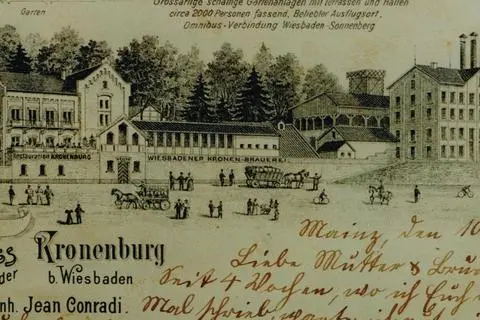 Grossartige schattige Gartenanlagen mit Terrassen und Hallen
Garten
circa 2000 Personen fassend, Beliebter Ausflugsort,
Omnibus-Verbindung Wiesbaden-Sonnenberg
Restauration KRONENBURG
WIESBADENER KRONEN-BRAUEREI
ss Kronenburg
der b. Wiesbaden
nh. Jean Conradi.
Mainz, den 10
Liebe Mutter & Brud
Seit 4 Wochen, wo ich Euch
Mal schrieb, warte ich